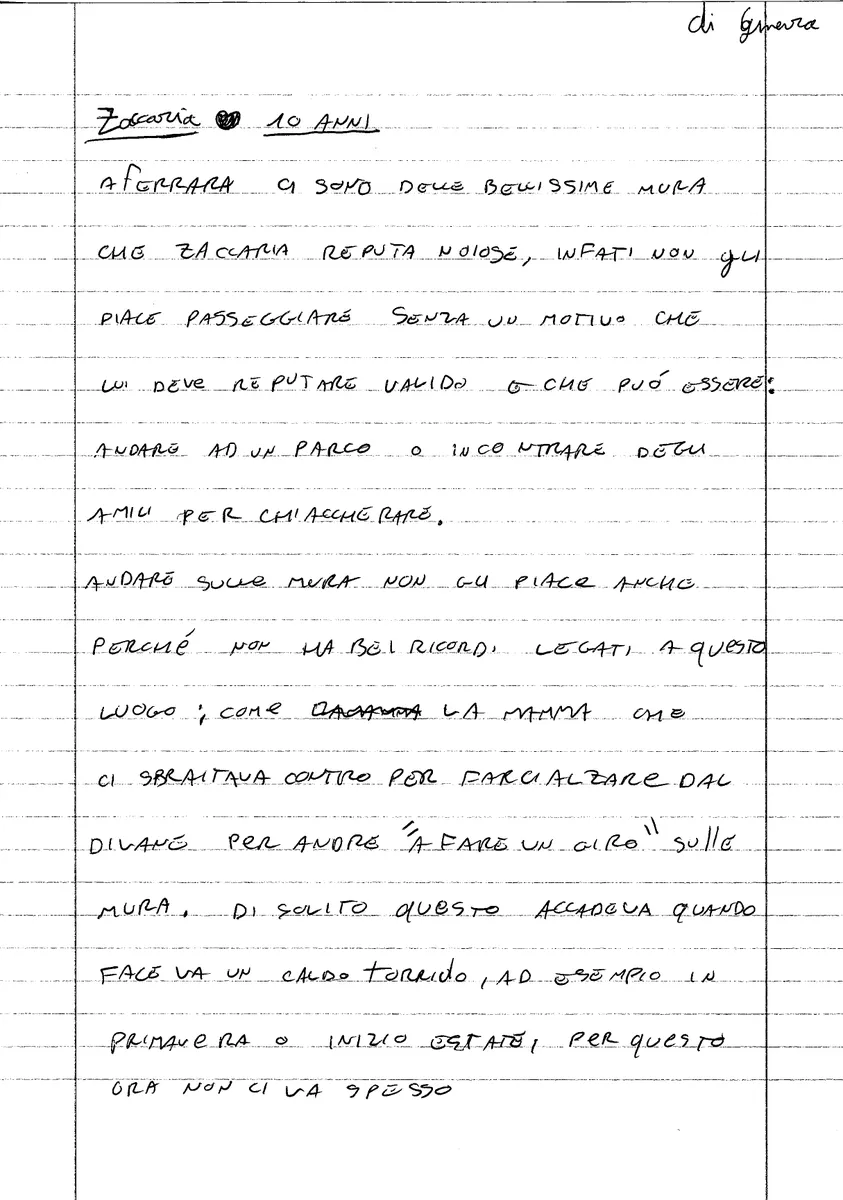 di Ginevra
Zaccaria 10 ANNI
A FERRARA CI SONO DELLE BELLISSIME MURA
CHE ZACCARIA REPUTA NOIOSE, INFATI NON GLI
PIACE PASSEGGIARE SENZA UN MOTIVO CHE
LUI DEVE REPUTARE VALIDO E CHE PUÓ ESSERE:
ANDARE AD UN PARCO O INCONTRARE DEGLI
AMICI PER CHIACCHERARE.
ANDARE SULLE MURA NON GLI PIACE ANCHE
PERCHÉ NON HA BEI RICORDI LEGATI A QUESTO
LUOGO; COME LA MAMMA CHE
CI SBRAITAVA CONTRO PER FARCI ALZARE DAL
DIVANE PER ANDRE "A FARE UN GIRO" SULLE
MURA. DI SOLITO QUESTO ACCADEVA QUANDO
FACEVA UN CALDO TORRIDO, AD ESEMPIO IN
PRIMAVERA O INIZIO ESTATE, PER QUESTO
ORA NON CI VA SPESSO